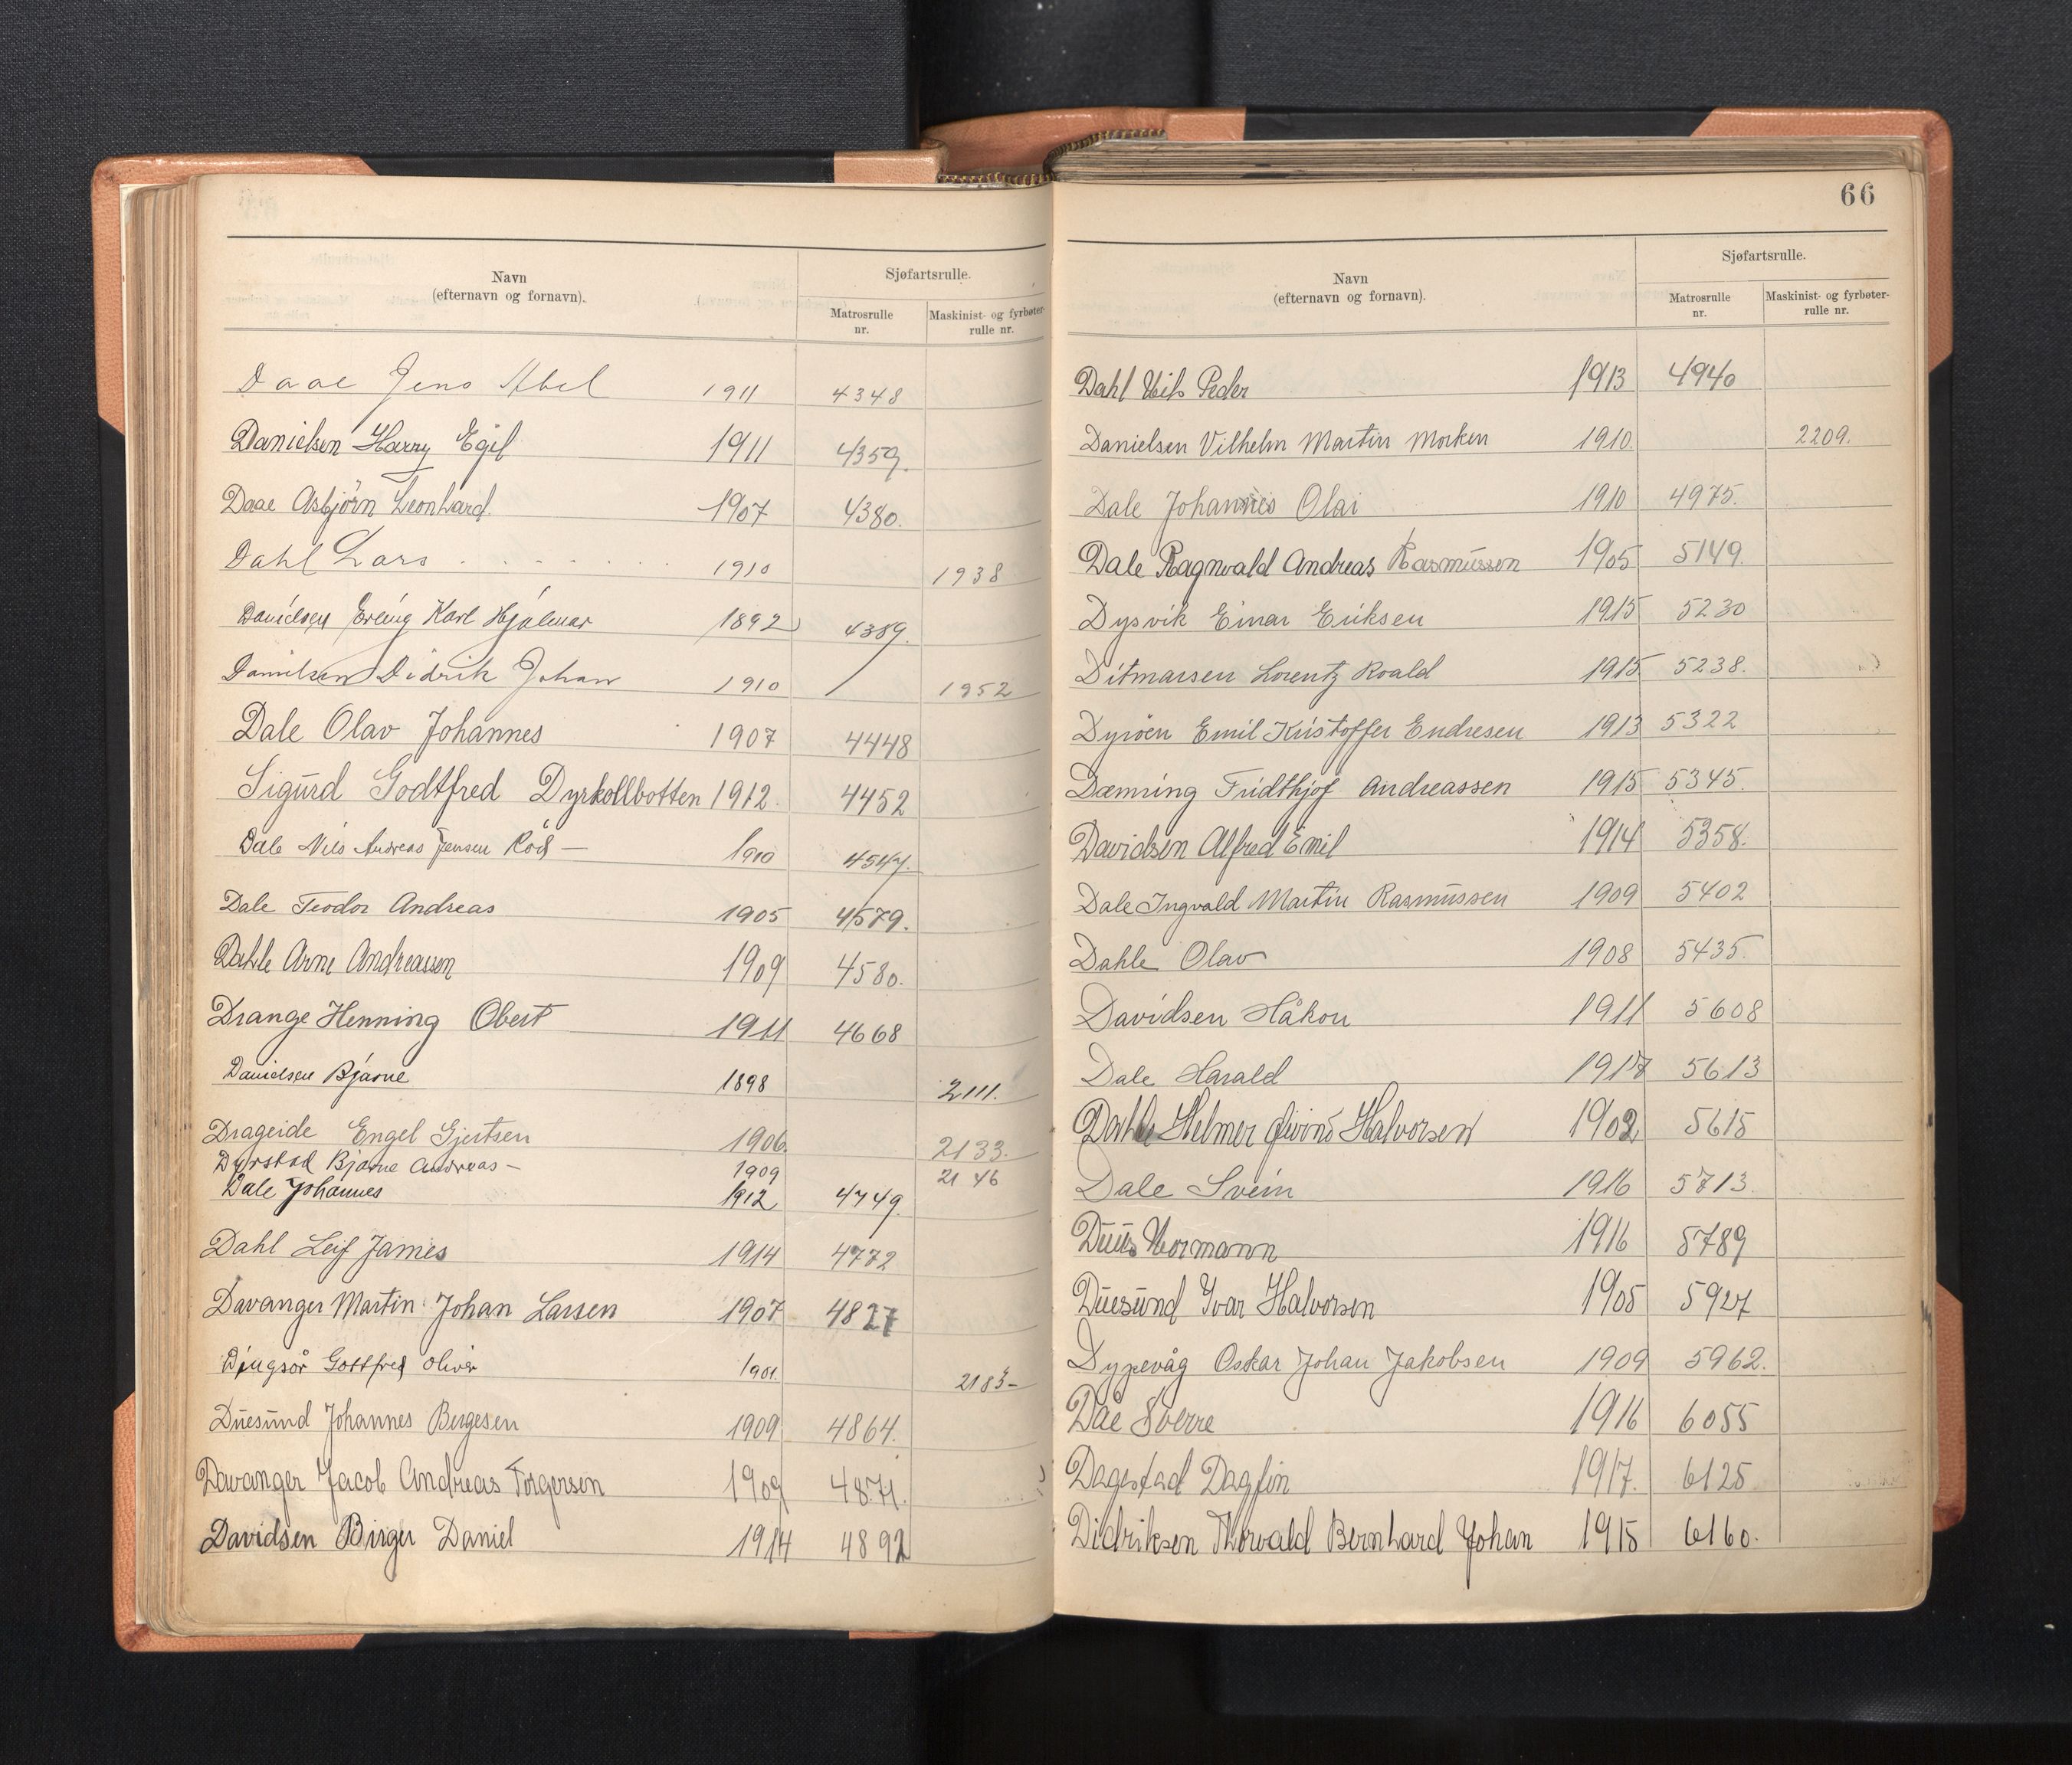 Navn
(efternavn og fornavn).
Sjøfartsrulle.
Matrosrulle
nr.
Maskinist- og fyrbøter-
rulle nr.
Daae Jens Abel 1911 4348
Danielsen Harry Egil 1911 4359.
Daae Asbjörn Leonhard 1907 4380.
Dahl Lars . . . . . . . 1910 1938
Danielsen Erling Karl Hjalmar 1892 4389.
Danielsen Didrik Johan 1910 / 1952
Dale Olav Johannes 1907 4448
Sigurd Godtfred Dyrkollbotten 1912. 4452
Dale Nils Andreas Jensen 1910
Dale Teodor Andreas 1905 4579.
Dahle Arne Andreassen 1909 4580.
Drange Henning Obert 1911 4668
Danielsen Bjarne 1898 2111.
Drageide Engel Gjertsen 1906. 2133.
Dyrstad Bjarne Andreas – 1909 2146
Dale Johannes 1912 4749.
Dahl Leif James 1914 4772
Davanger Martin Johan Larsen 1907 4827
Gottfred Oliver 1901. 2183–
Duesund Johannes Birgesen 1909 4864.
Davanger Jacob Andreas Torgersen 1909 4871.
Davidsen Birger Daniel 1914 4892
66
Navn
(efternavn og fornavn).
Sjøfartsrulle.
Matrosrulle
nr.
Maskinist- og fyrbøter-
rulle nr.
Dahl Nils Peder 1913 4940
Danielsen Vilhelm Martin Morken 1910. 2209.
Dale Johannes Olai 1910 4975.
Dale Ragnvald Andreas Rasmussen 1905 5149.
Dysvik Einar Eriksen 1915 5230
Ditmarsen Lorentz Roald 1915 5238.
Dyröen Emil Kristoffer Endresen 1913 5322
Dæmring Fridthjof Andreassen 1915 5345.
Davidsen Alfred Emil 1914 5358.
Dale Ingvald Martin Rasmussen 1909 5402
Dahle Olav 1908 5435.
Davidsen Håkon 1911 5608
Dale Harald 1917 5613
Dahle Helmer Øivind Halvorsen 1902 5615
Dale Svein 1916 5713.
Duus Normann 1916 5789
Duesund Ivar Halvorsen 1905 5927
Dypevåg Oskar Johan Jakobsen 1909 5962.
Dåe Sverre 1916 6055
Dagestad Dagfin 1917. 6125
Didriksen Thorvald Bernhard Johan 1915 6160.